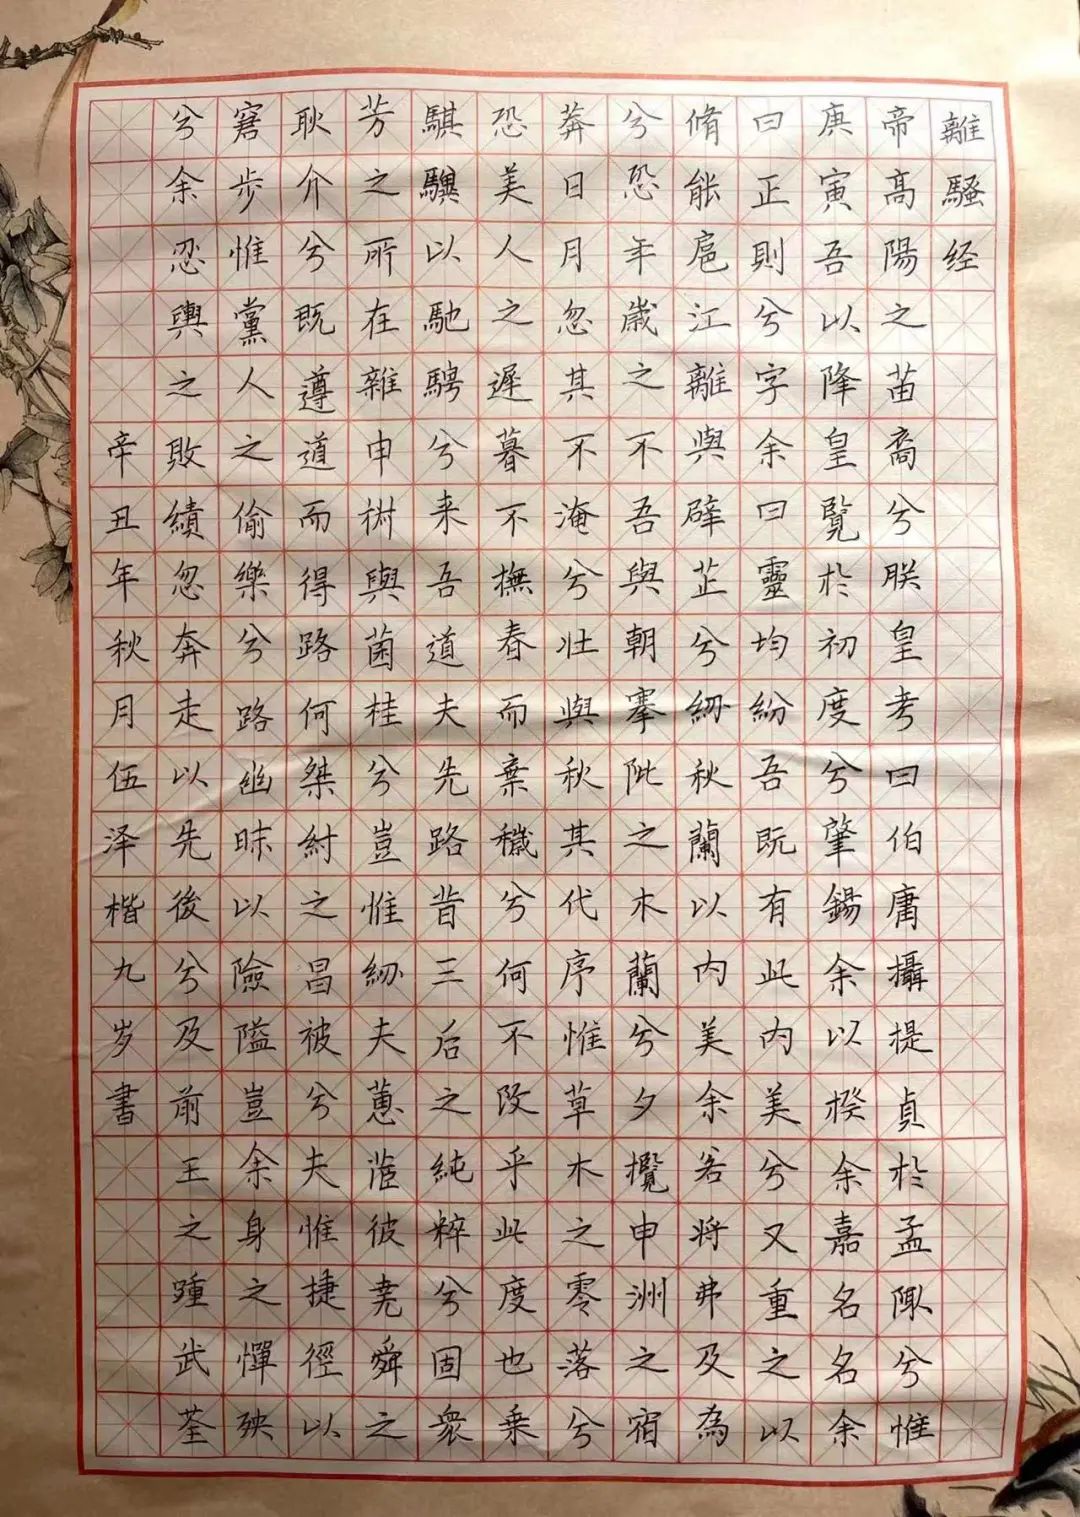 離騷经
帝高陽之苗裔兮朕皇考曰伯庸攝提貞於孟陬兮惟
庚寅吾以降皇覽於初度兮肇錫余以揆余嘉名名余
曰正則兮字余曰靈均紛吾既有此内美兮又重之以
脩能扈江離與辟芷兮紉秋蘭以内美余若将弗及為
兮恐年歲之不吾與朝搴阰之木蘭兮夕攬申洲之宿
莽日月忽其不淹兮壮與秋其代序惟草木之零落兮
恐美人之遲暮不撫春而棄穢兮何不改乎此度也乗
騏驥以馳騁兮来吾道夫先路昔三后之純粹兮固衆
芳之所在雜申椒與菌桂兮豈惟紉夫蕙茝彼堯舜之
耿介兮既遵道而得路何桀紂之昌被兮夫惟捷徑以
窘步惟黨人之偷樂兮路幽昧以險隘豈余身之憚殃
兮余忍輿之敗績忽奔走以先後兮及前王之踵武荃
辛丑年秋月伍泽楷九岁書